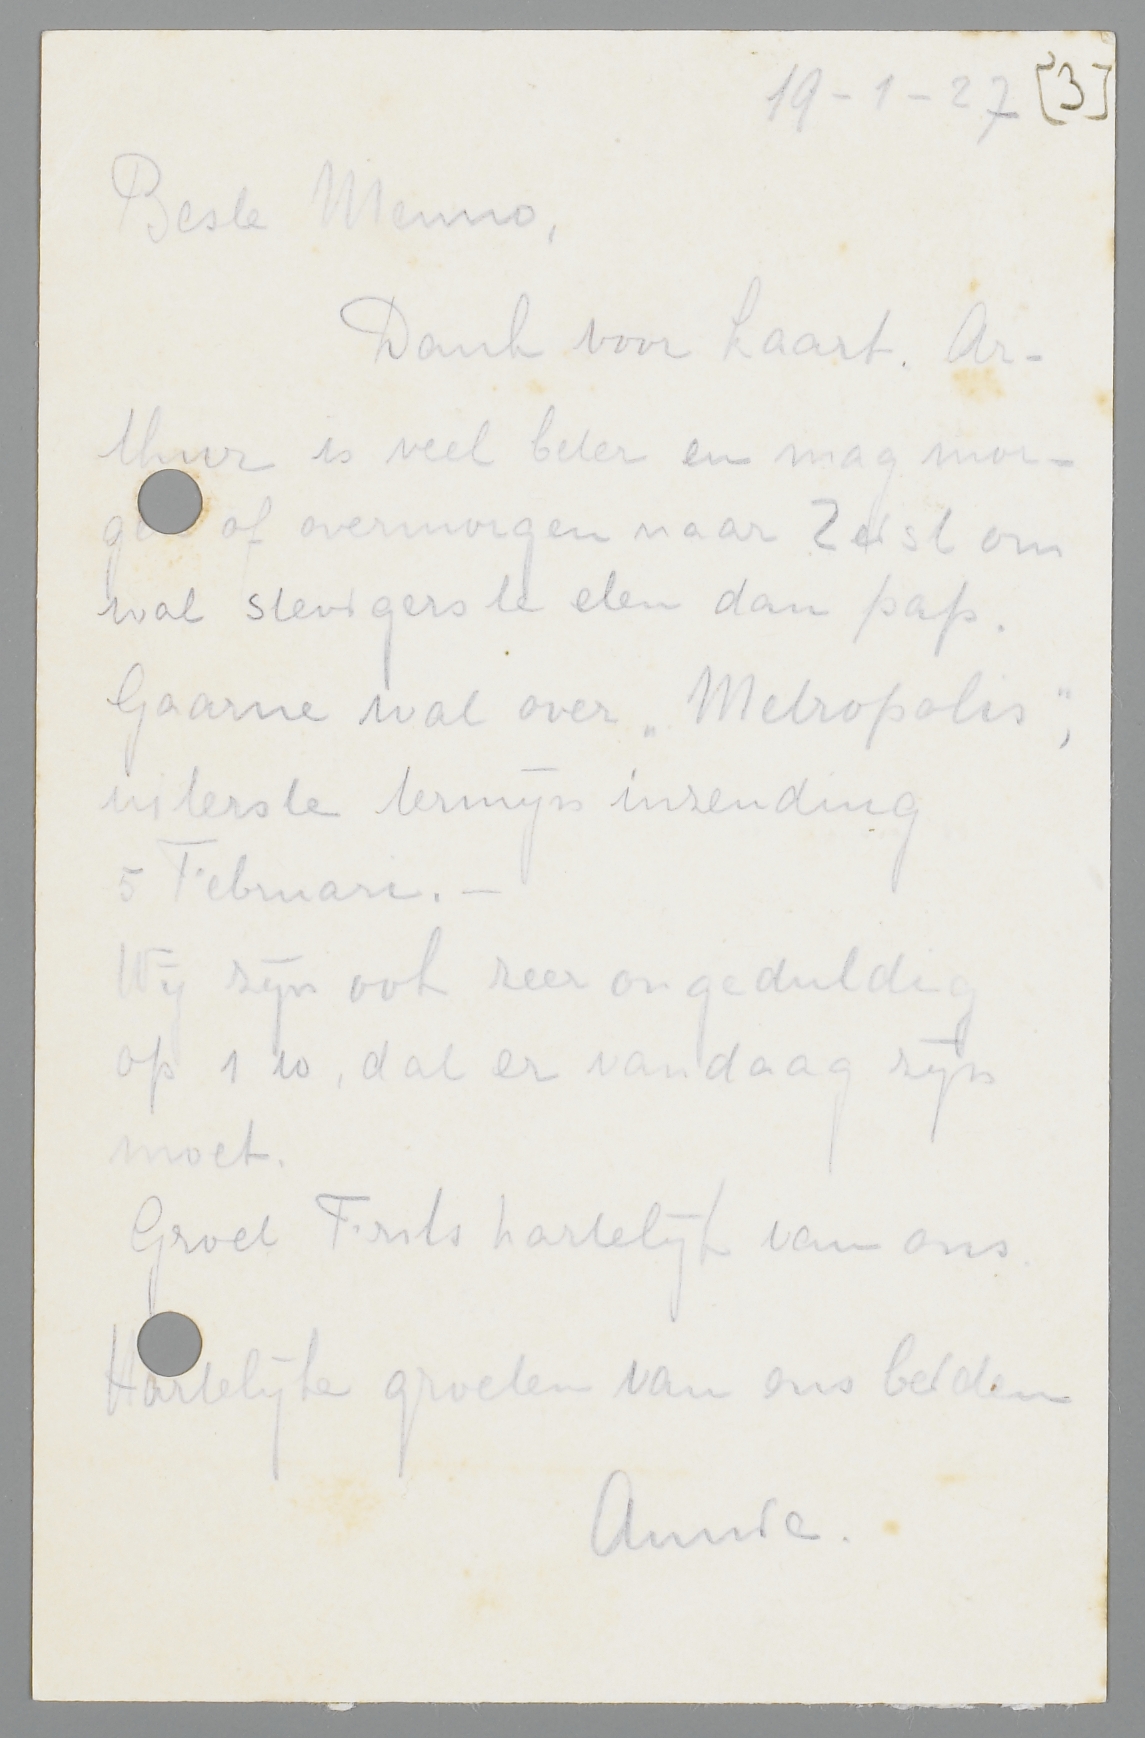 19-1-27 [3]
Beste Menno,
Dank voor kaart. Ar-
thur is veel beter en mag mor-
gen of overmorgen naar Zeist om
wat stevigers te eten dan pap.
Gaarne wat over „Metropolis",
uiterste termijn inzending
5 Februari. —
Wij zijn ook zeer ongeduldig
op 1 10, dat er vandaag zijn
moet.
Groet Frits hartelijk van ons
Hartelijke groeten van ons beiden
Annie.